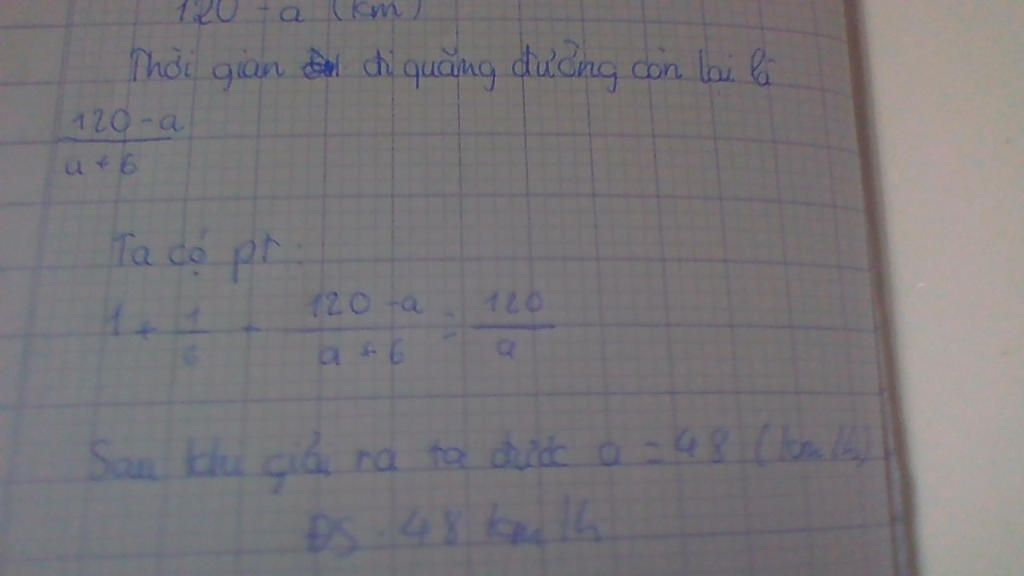 120 - a (km)
Thời gian đi quãng đường còn lại là
120 - a
a + 6
Ta có pt:
1 + 1/6 + 120 - a / a + 6 = 120 / a
Sau khi giải ra ta được a = 48 (km/h)
ĐS: 48 km/h